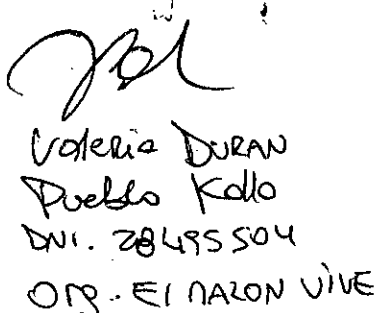 Valeria DURAN
Pueblo Kolla
DNI. 28495504
Org. El MALON VIVE